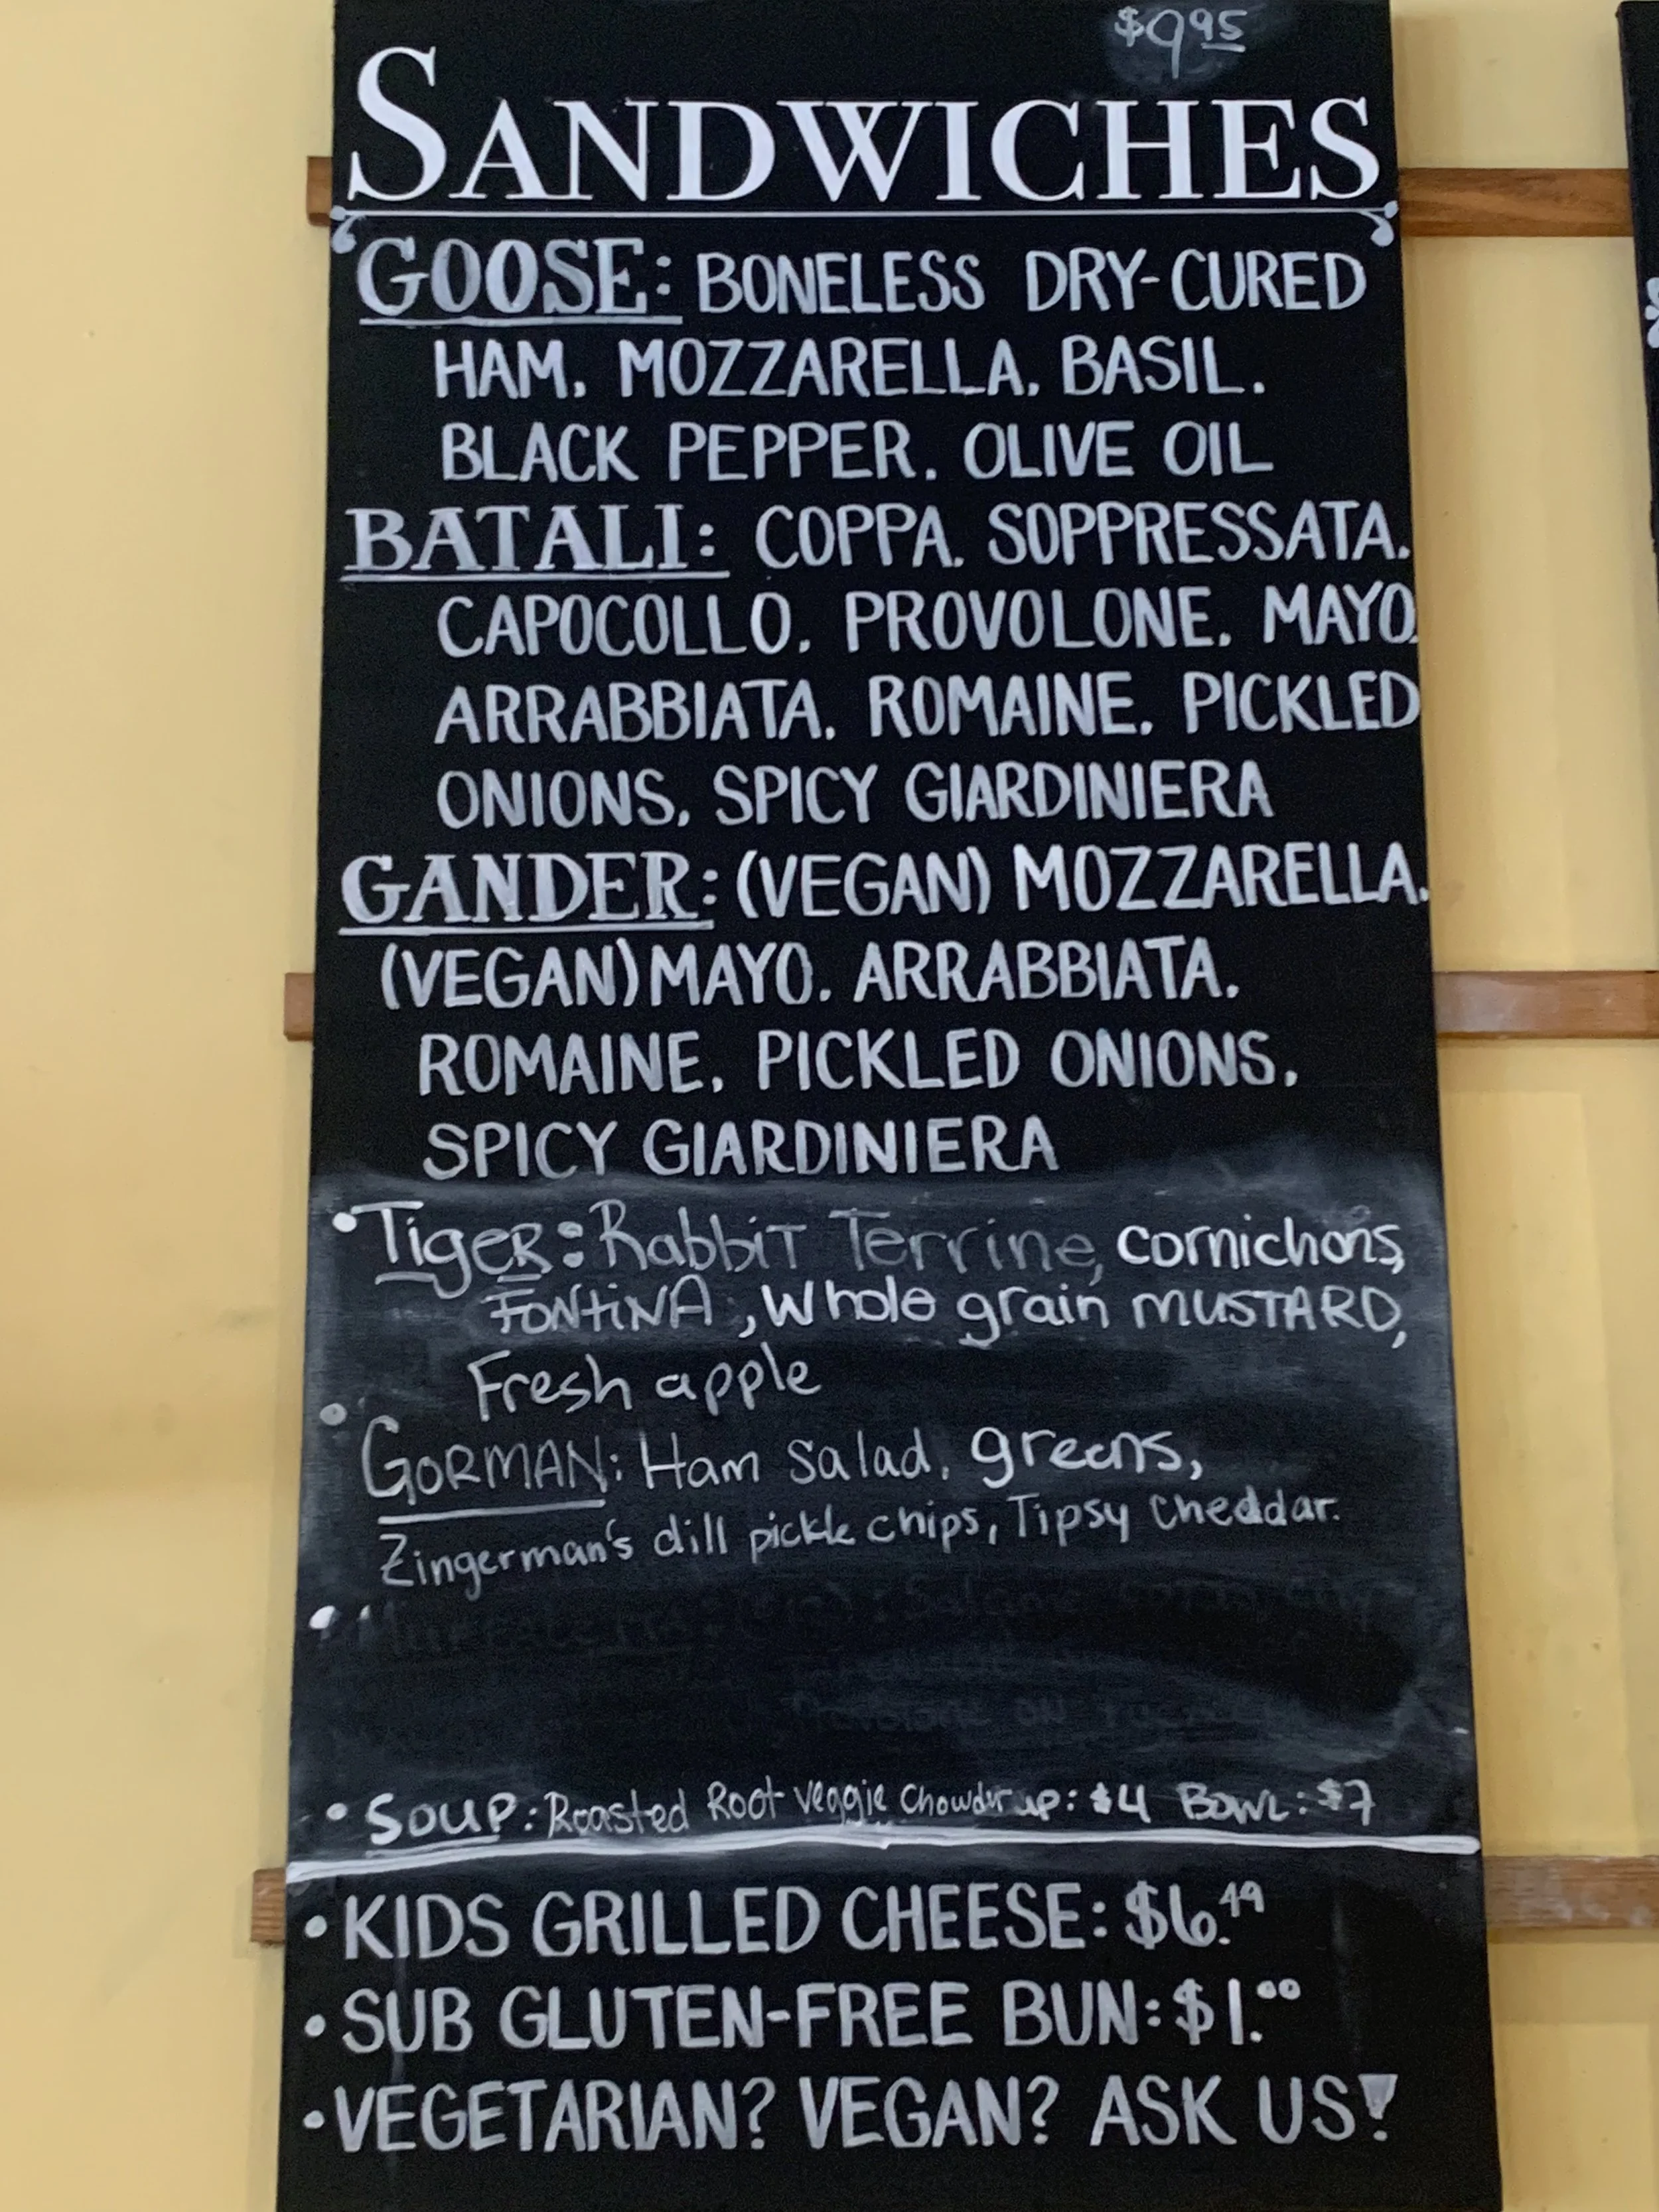 $9.95
SANDWICHES
GOOSE: BONELESS DRY-CURED
HAM, MOZZARELLA, BASIL,
BLACK PEPPER, OLIVE OIL
BATALI: COPPA, SOPPRESSATA,
CAPOCOLLO, PROVOLONE, MAYO,
ARRABBIATA, ROMAINE, PICKLED
ONIONS, SPICY GIARDINIERA
GANDER: (VEGAN) MOZZARELLA,
(VEGAN) MAYO, ARRABBIATA,
ROMAINE, PICKLED ONIONS,
SPICY GIARDINIERA
•TigeR: Rabbit Terrine, cornichons,
FONTiNA, Whole grain MUSTARD,
Fresh apple
• GORMAN: Ham Salad, greens,
Zingerman's dill pickle chips, Tipsy Cheddar.
•
• SOUP: Roasted Root Veggie Chowder up: $4 BOWL: $7
• KIDS GRILLED CHEESE: $6.49
• SUB GLUTEN-FREE BUN: $1.00
• VEGETARIAN? VEGAN? ASK US!